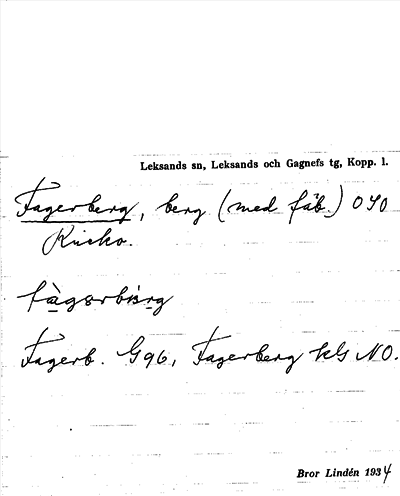 Leksands sn, Leksands och Gagnefs tg, Kopp. l.
Fagerberg, berg (med fäb.) OSO
Risho.
Fagerb. G96, Fagerberg kls NO.
Bror Lindén 1934